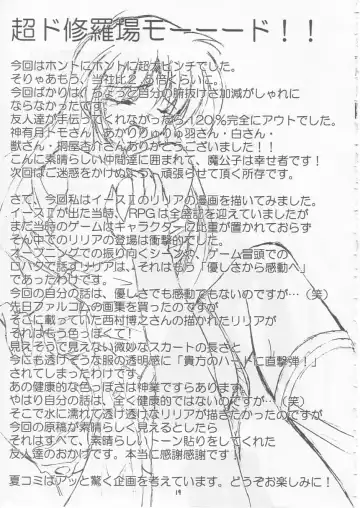 超ド修羅場モーーーード！！
今回はホントにホントに超大ピンチでした。
そりゃあもう、当社比2.5倍くらいに。
今回ばかりはちょっと自分の腑抜けさ加減がしゃれに
ならなかったです。
友人達が手伝ってくれなかったら120%完全にアウトでした。
神有月トモさん・あかりりゅりゅ羽さん・白さん・
獣さん・桐屋古介さんありがとうございました！！
こんに素晴らしい仲間達に囲まれて、魔公子は幸せ者です！
次回はご迷惑をかけぬよう、頑張らせて頂く所存です。
さて、今回私はイースⅡのリリアの漫画を描いてみました。
イースⅡが出た当時、RPGは全盛誌を迎えていましたが
まだ当時のゲームはキャラクターに比重が置かれておらず
そん中でのリリアの登場は衝撃的でした。
オープニングでの振り向くシーンや、ゲーム冒頭での
口パクで話すリリアは、それはもう「優しさから感動へ」
であったわけです。
今回の自分の話は、優しさでも感動でもないのですが…（笑）
先日ファルコムの画集を買ったのですが
そこに載っていた西村博之さんの描かれたリリアが
それはもう色っぽくて！
見えそうで見えない微妙なスカートの長さと
今にも透けそうな服の透明感に「貴方のハートに直撃弾！」
されてしまったわけです。
あの健康的な色っぽさは神業ですらあります。
やはり自分の話は、全く健康的ではないのですが…（笑）
そこで水に濡れて透け透けなリリアが描きたかったのですが
今回の原稿が素晴らしく見えるとしたら
それはすべて、素晴らしいトーン貼りをしてくれた
友人達のおかげです。本当に感謝感謝です！
夏コミはアッと驚く企画を考えています。どうぞお楽しみに！
19